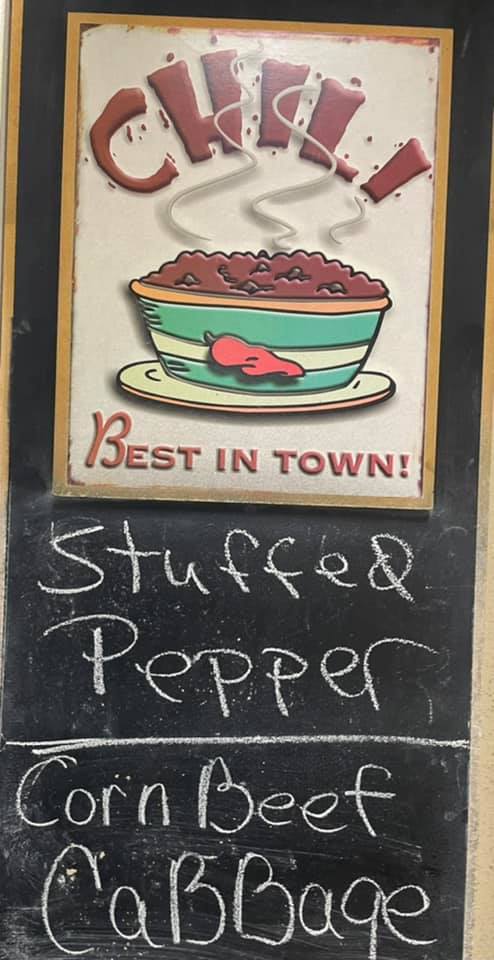 CHILI
BEST IN TOWN!
Stuffed
Pepper
Corn Beef
CaBBage